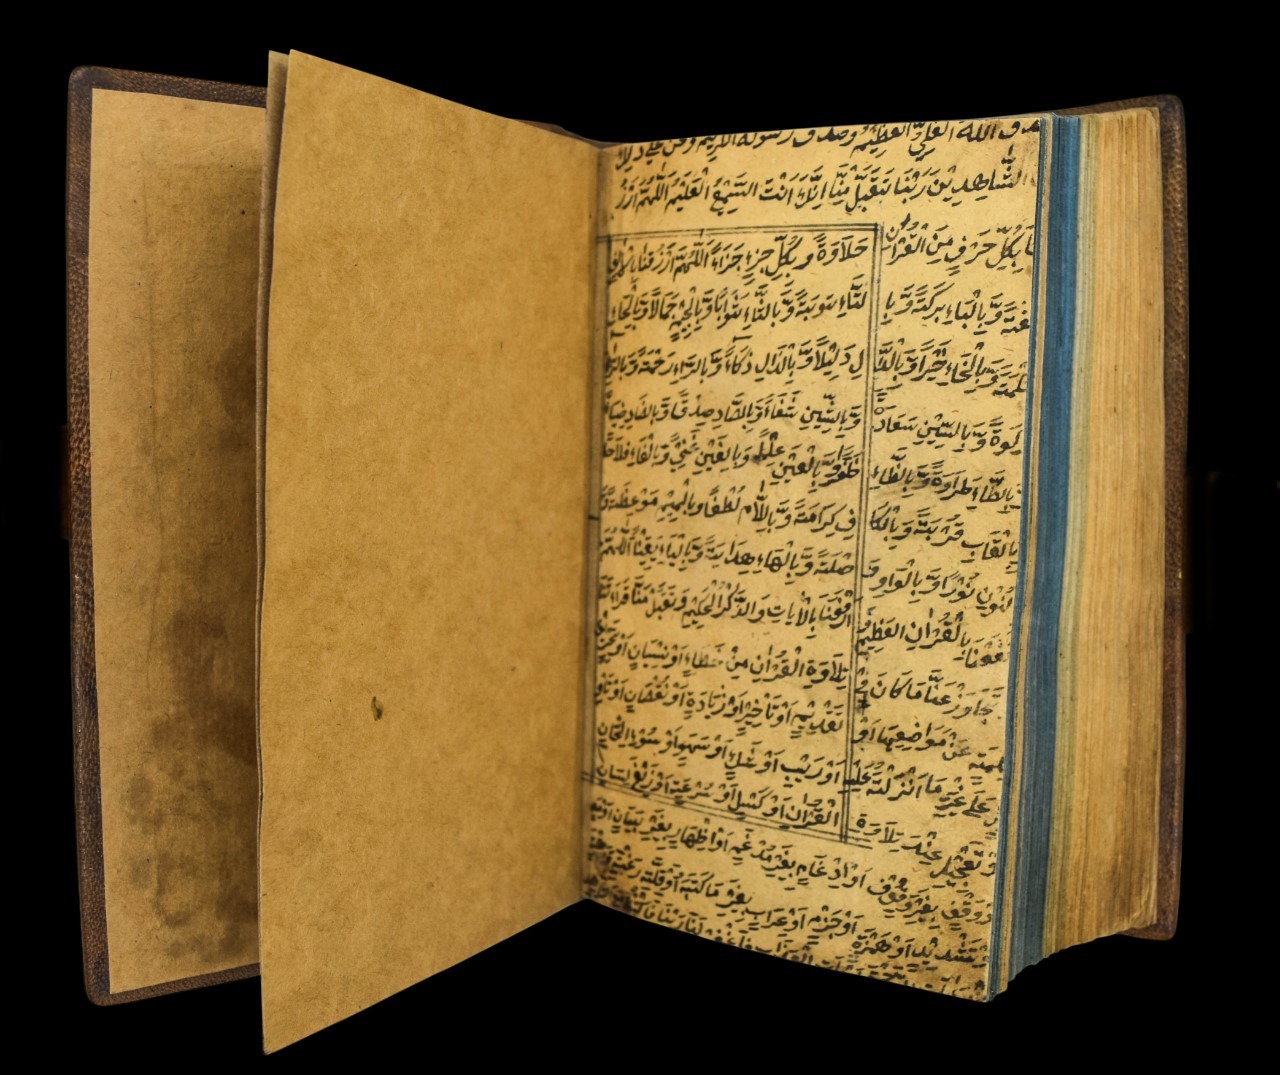 صدق الله العَلِيِّ العَظِيْمُ وَصَدَقَ رَسُولُهُ الكَرِيْم وَنَحْنُ عَلَى ذٰلِكَ
الشَّاهِدِيْنَ رَبَّنَا تَقَبَّلْ مِنَّا اِنَّكَ اَنْتَ السَّمِيْعُ الْعَلِيْمُ اَللّٰهُمَّ ارْزُ
نَا بِكُلِّ حَرْفٍ مِنَ الْقُرْاٰنِ حَلَاوَةً وَبِكُلِّ جزءٍ جَزَاءً اَللّٰهُمَّ ارْزُقْنَا بِالْاَلِفِ
اُلْفَةً وَّبِالْبَاءِ بَرَكَةً وَّبِا لتَّاءِ تَوبَةً وَّبِالثَّاءِ ثَوَابًا وَّبِالْجِيْمِ جَمَالًا وَّبِالْحَاءِ
حِكْمَةً وَّبِالْخَاءِ خَيْرًا وَّبِالدَّا لِ دَلِيْلًا وَّبِالذَّالِ ذَكَاءً وَّبِالرَّاءِ رَحْمَةً وَّبِالزَّاءِ
زَكٰوةً وَّبِالسِّيْنِ سَعَادَةً وَّبِالشِّيْنِ شَفَاءً وَّبِالصَّادِ صِدْقًا وَّبِالضَّادِ ضِيَاءً
وَّبِالطَّاءِ طَرَاوَةً وَّبِالظَّاءِ ظَفَرًا وَّبِالْعَيْنِ عِلْمًا وَبِالْغَيْنِ غِنًى وَّبِالْفَاءِ فَلَاحًا
وَّبِالْقَافِ قُرْبَةً وَّبِالْكَا فِ كَرَامَةً وَّبِاللَّامِ لُطْفًا وَبِالْمِيْمِ مَوْعِظَةً وَّ
بِالنُّوْنِ نُوْرًا وَّبِالْوَاوِ وُ صْلَةً وَّبِالْهَاءِ هِدَايَةً وَّبِالْيَاءِ يَقِيْنًا اَللّٰهُمَّ
نْفَعْنَا بِالْقُرْاٰنِ الْعَظِيْمِ وَارْفَعْنَا بِالْاٰيَاتِ وَالذِّكْرِ الْحَكِيْمِ وَتَقَبَّلْ مِنَّا قِرَاءَتَنَا
وَتَجَاوَزْ عَنَّا مَا كَانَ فِيْ تِلَاوَةِ الْقُرْاٰنِ مِنْ خَطَاءٍ اَوْ نِسْيَانٍ اَوْ تَحْرِيْفِ
كَلِمَةٍ عَنْ مَوَاضِعِهَا اَوْ تَقْدِيْمٍ اَوْ تَاخِيْرٍ اَوْ زِيَادَةٍ اَوْ نُقْصَانٍ اَوْ تَاوِيْلٍ
عَلٰى غَيْرِ مَا اَنْزَلْتَهُ عَلَيْهِ اَوْ رَيْبٍ اَوْ شَكٍّ اَوْ سَهْوٍ اَوْ سُوْءِ اِلْحَانٍ
اَوْ تَعْجِيْلٍ عِنْدَ تِلَاوَةِ الْقُرْاٰنِ اَوْ كَسَلٍ اَوْ سُرْعَةٍ اَوْ زَيْغِ لِسَانٍ
اَوْ وَقْفٍ بِغَيْرِ وُقُوْفٍ اَوْ اِدْغَامٍ بِغَيْرِ مُدْغَمٍ اَوْ اِظْهَارٍ بِغَيْرِ بَيَانٍ اَوْ
تَشْدِيْدٍ اَوْ هَمْزَةٍ اَوْ جَزْمٍ اَوْ اِعْرَابٍ بِغَيْرِ مَا كَتَبَهُ اَوْ قِلَّةِ رَغْبَةٍ